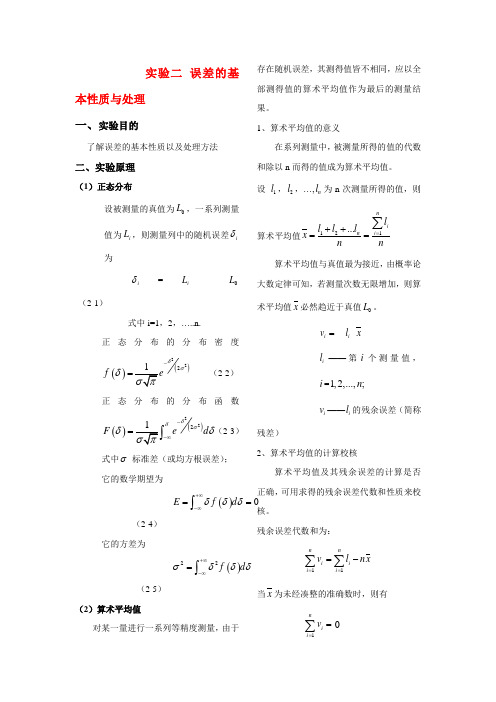 实验二 误差的基
本性质与处理
一、实验目的
了解误差的基本性质以及处理方法
二、实验原理
（1）正态分布
设被测量的真值为L₀，一系列测量
值为Lᵢ，则测量列中的随机误差δᵢ
为
δᵢ = Lᵢ L₀
（2-1）
式中i=1，2，…..n.
正态分布的分布密度
f(δ)=1/(σ√π) e^(-δ²/(2σ²)) （2-2）
正态分布的分布函数
F(δ)=1/(σ√π) ∫_{-∞}^{δ} e^(-δ²/(2σ²)) dδ（2-3）
式中σ 标准差（或均方根误差）；
它的数学期望为
E=∫_{-∞}^{+∞} δf(δ)dδ=0
（2-4）
它的方差为
σ²=∫_{-∞}^{+∞} δ²f(δ)dδ
（2-5）
（2）算术平均值
对某一量进行一系列等精度测量，由于
存在随机误差，其测得值皆不相同，应以全
部测得值的算术平均值作为最后的测量结
果。
1、算术平均值的意义
在系列测量中，被测量所得的值的代数
和除以n而得的值成为算术平均值。
设 l₁，l₂，…,lₙ 为n次测量所得的值，则
算术平均值 x̄=(l₁+l₂+...lₙ)/n=(∑_{i=1}^{n} lᵢ)/n
算术平均值与真值最为接近，由概率论
大数定律可知，若测量次数无限增加，则算
术平均值x̄必然趋近于真值L₀。
vᵢ = lᵢ x̄
lᵢ ——第i个测量值，
i=1,2,...,n;
vᵢ——lᵢ的残余误差（简称
残差）
2、算术平均值的计算校核
算术平均值及其残余误差的计算是否
正确，可用求得的残余误差代数和性质来校
核。
残余误差代数和为：
∑_{i=1}^{n} vᵢ=∑_{i=1}^{n} lᵢ-nx̄
当x̄为未经凑整的准确数时，则有
∑_{i=1}^{n} vᵢ=0